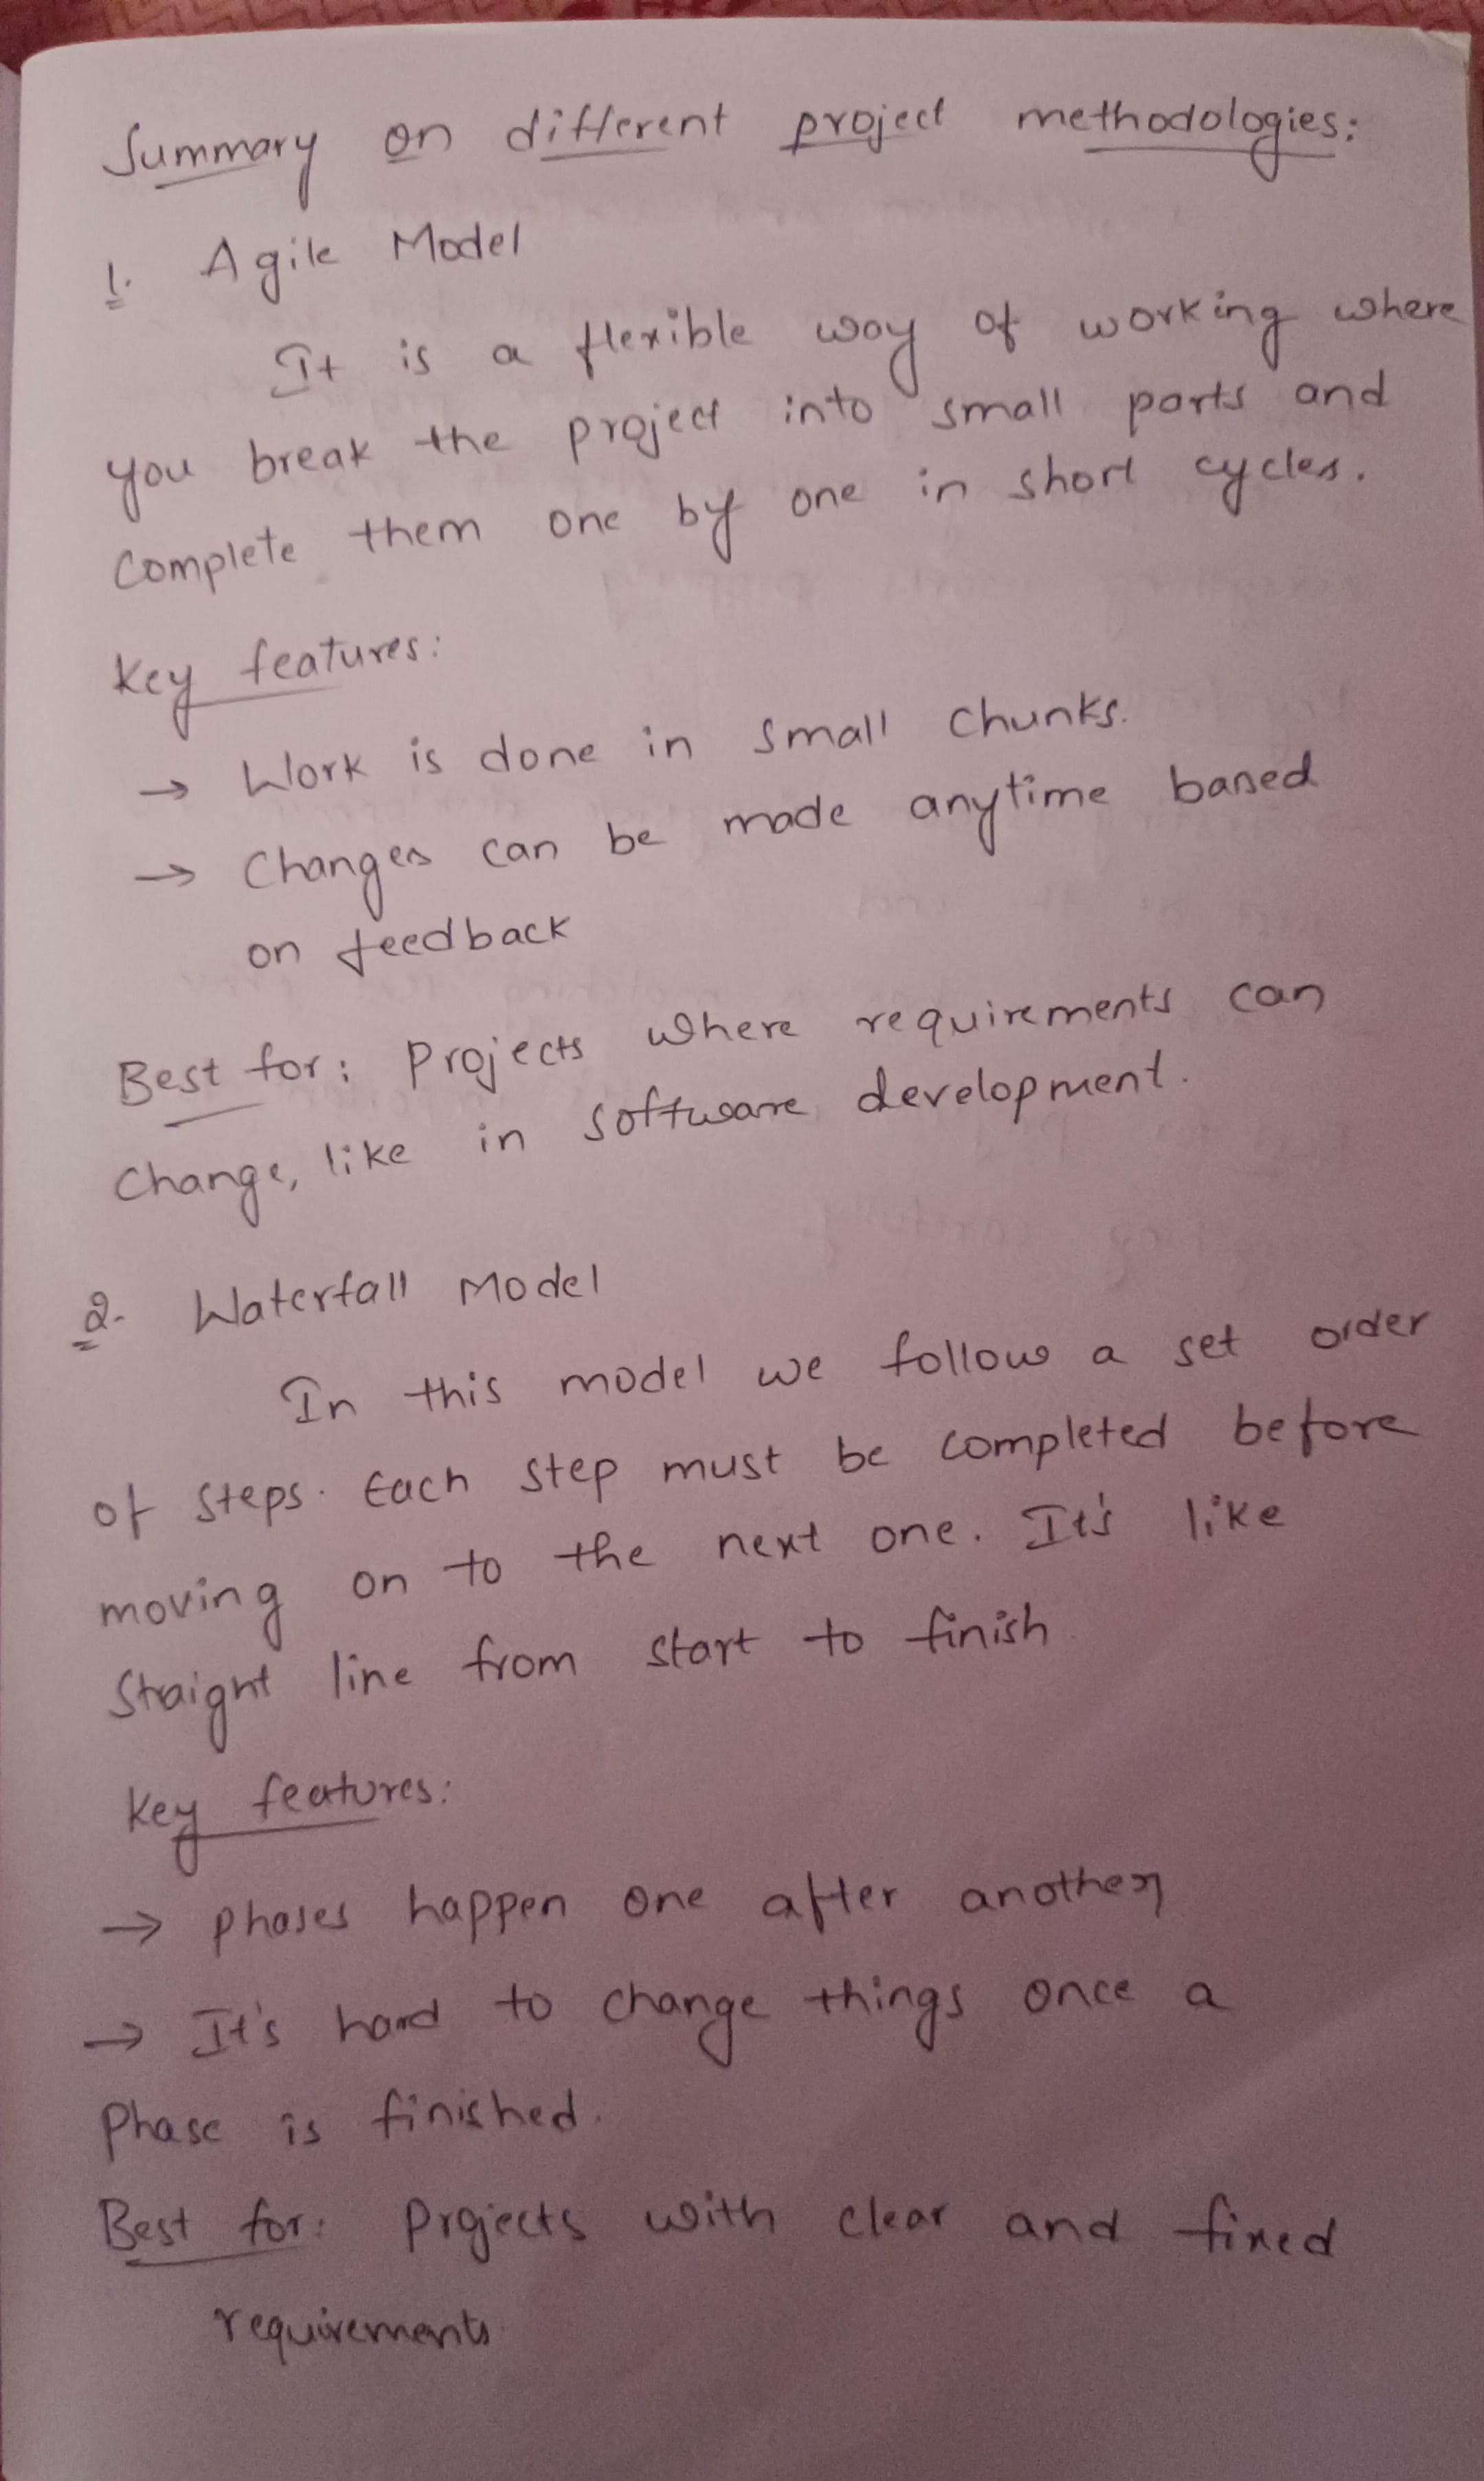 Summary on different project methodologies:
1. Agile Model
It is a flexible way of working where
you break the project into small parts and
Complete them one by one in short cycles.
Key features:
→ Work is done in small chunks.
→ Changes can be made anytime based
on feedback
Best for: Projects where requirements can
Change, like in software development.
2. Waterfall Model
In this model we follow a set order
of steps. Each step must be completed before
moving on to the next one. It's like
Straight line from start to finish
Key features:
→ phases happen one after another
→ It's hard to change things once a
Phase is finished.
Best for: Projects with clear and fixed
requirements.